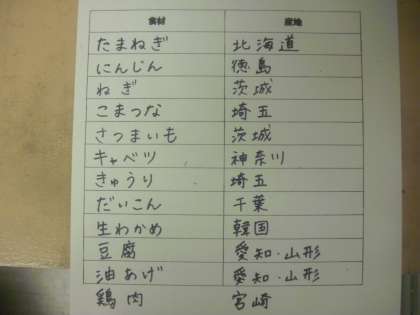 食材 産地
たまねぎ 北海道
にんじん 徳島
ねぎ 茨城
こまつな 埼玉
さつまいも 茨城
キャベツ 神奈川
きゅうり 埼玉
だいこん 千葉
生わかめ 韓国
豆腐 愛知・山形
油あげ 愛知・山形
鶏肉 宮崎